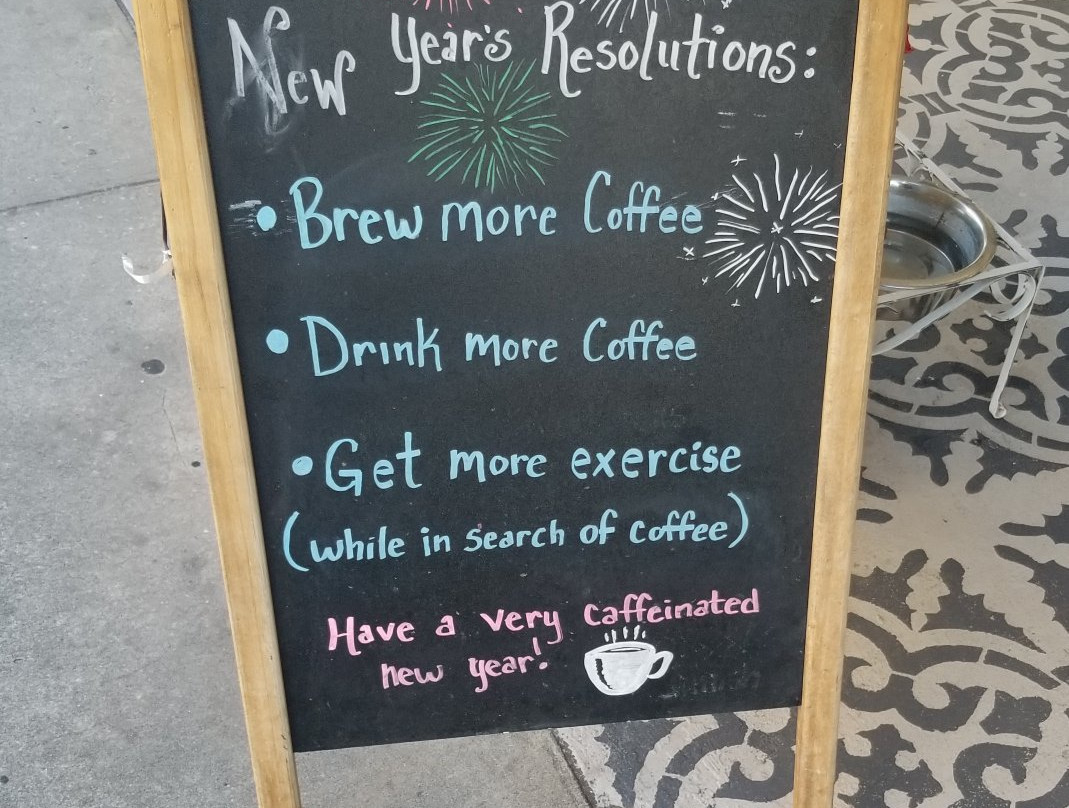 New Year's Resolutions:
• Brew more Coffee
• Drink more Coffee
• Get more exercise
(while in search of coffee)
Have a very caffeinated
new year!